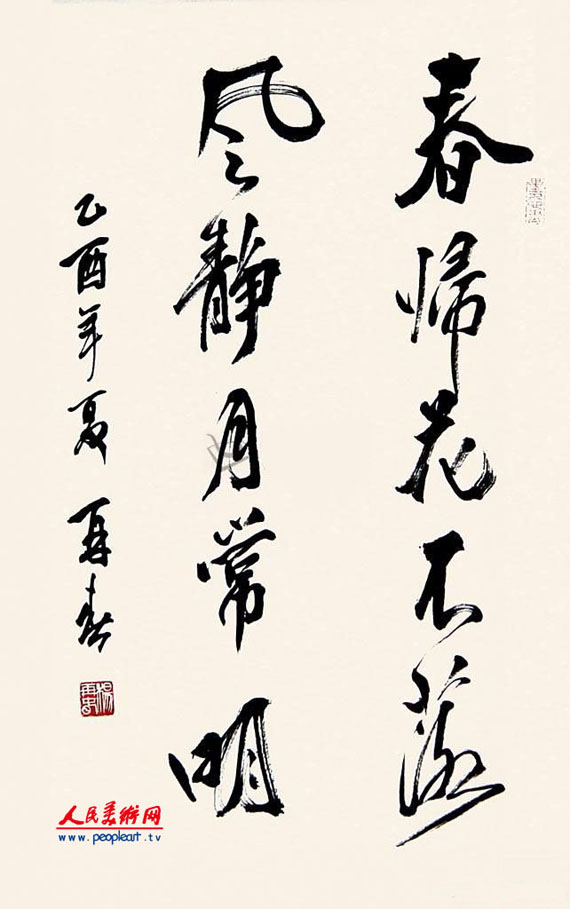 春歸花不落
風靜月常明
乙酉年夏 再春
人民美术网
www.peopleart.tv